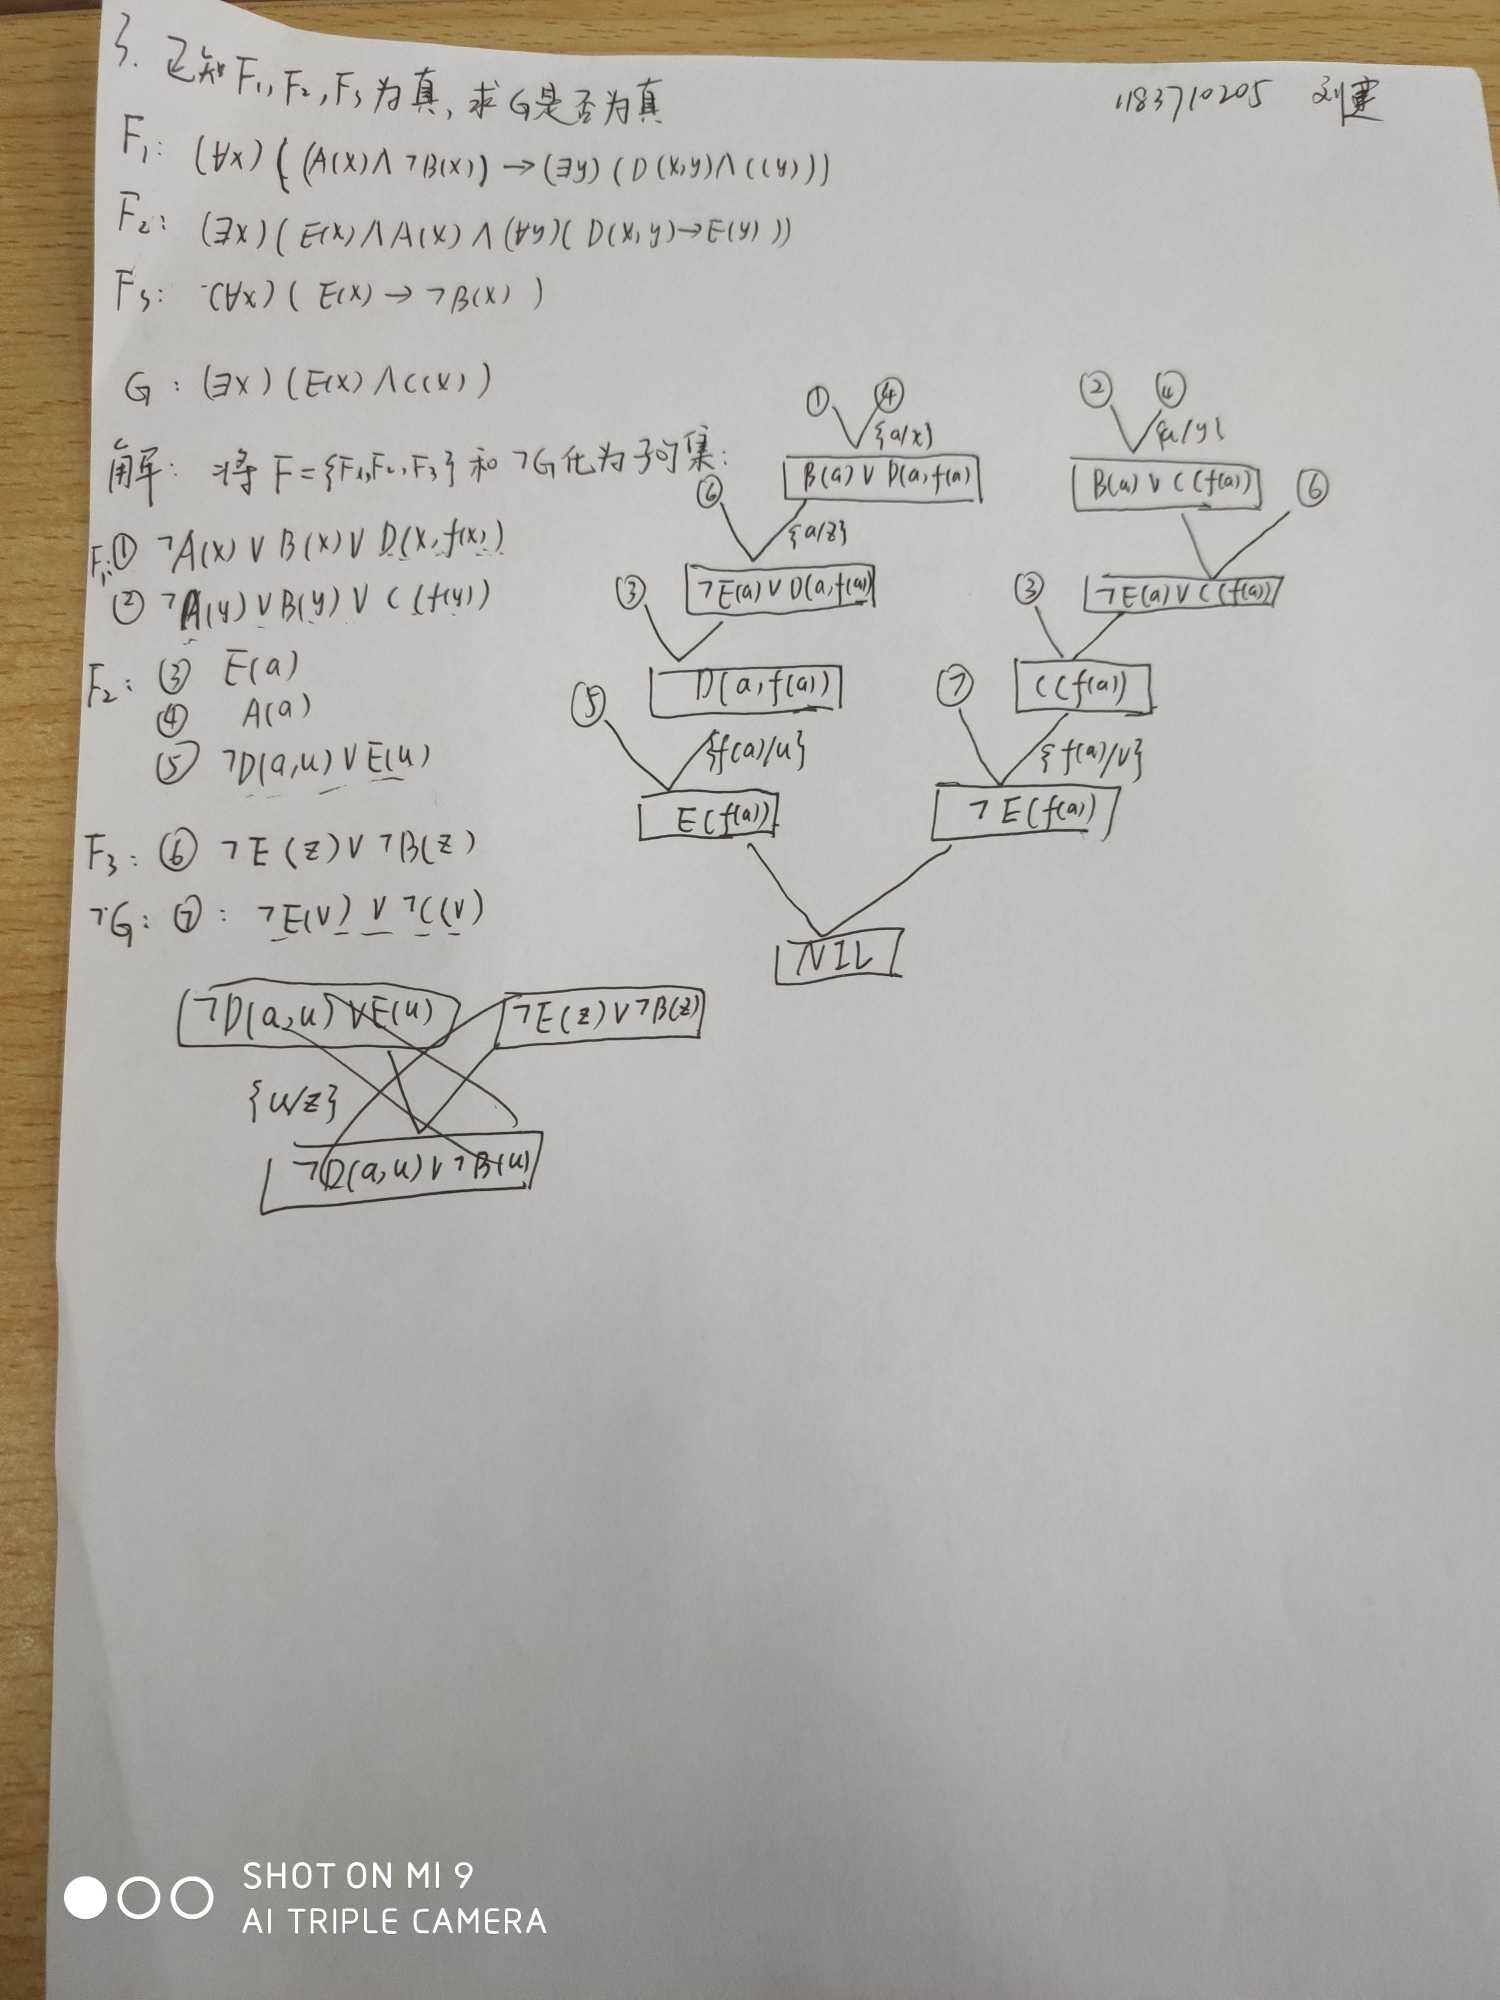 3. 已知F₁, F₂, F₃为真, 求G是否为真
1183710205 刘建
F₁: (∀x)((A(x)∧¬B(x))→(∃y)(D(x,y)∧C(y)))
F₂: (∃x)(E(x)∧A(x)∧(∀y)(D(x,y)→E(y)))
F₃: (∀x)(E(x)→¬B(x))
G: (∃x)(E(x)∧C(x))
解: 将F={F₁,F₂,F₃}和¬G化为子句集:
F₁:① ¬A(x)∨B(x)∨D(x,f(x))
② ¬A(y)∨B(y)∨C(f(y))
F₂: ③ E(a)
④ A(a)
⑤ ¬D(a,u)∨E(u)
F₃: ⑥ ¬E(z)∨¬B(z)
¬G: ⑦: ¬E(v)∨¬C(v)
¬D(a,u)∨E(u) ¬E(z)∨¬B(z)
{u/z}
¬D(a,u)∨¬B(u)
① ④
{a/x}
⑥ B(a)∨D(a,f(a))
{a/z}
③ ¬E(a)∨D(a,f(a))
⑤ D(a,f(a))
{f(a)/u}
E(f(a))
② ④
{a/y}
B(a)∨C(f(a)) ⑥
③ ¬E(a)∨C(f(a))
⑦ C(f(a))
{f(a)/v}
¬E(f(a))
NIL
SHOT ON MI 9
AI TRIPLE CAMERA